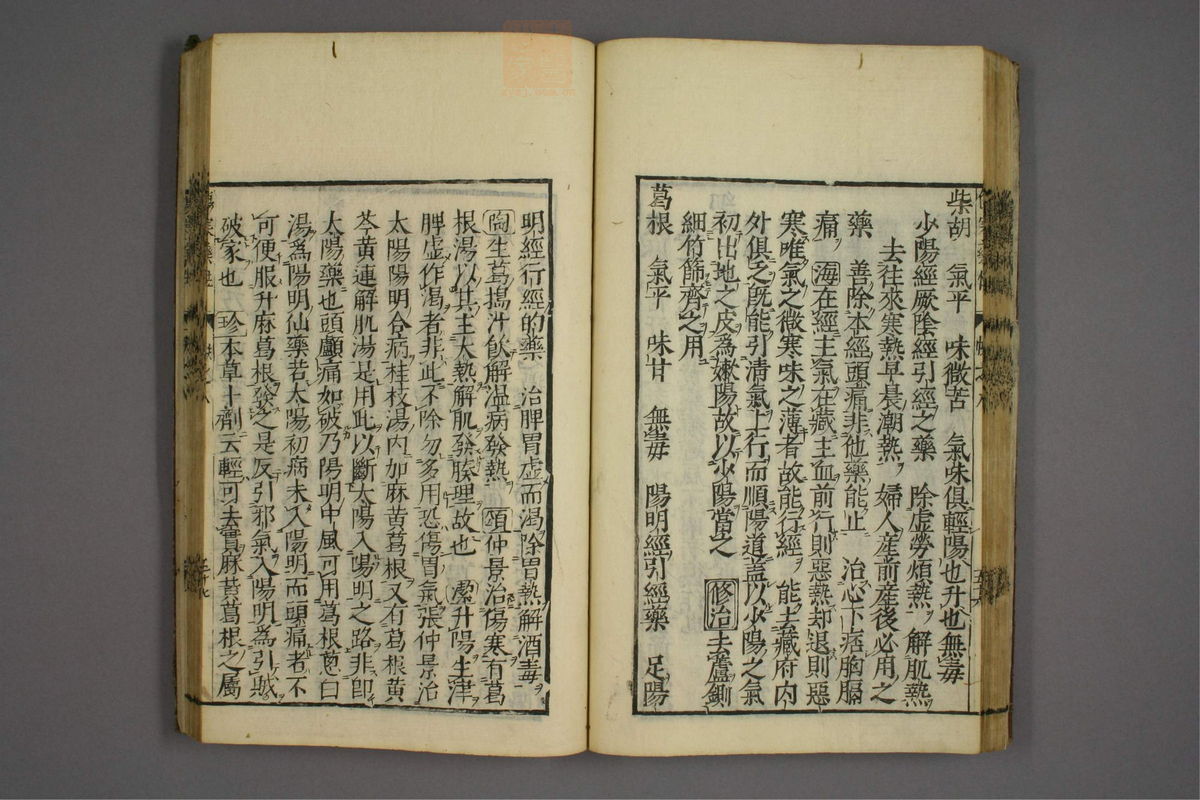 柴胡 氣平 味微苦 氣味俱輕陽也升也無毒
少陽經厥陰經引經之藥 除虛勞煩熱 解肌熱
去往來寒熱早晨潮熱 婦人産前産後必用之
藥 善除本經頭痛非他藥能止 治心下痞胸膈
痛 海在經主氣在藏主血前行則惡熱却退則惡
寒唯氣之微寒味之薄者故能行經 能去藏府内
外俱乏旣能引淸氣上行而順陽道蓋以少陽之氣
初出地之皮爲嫰陽故以少陽當之 修治去蘆鍘
細竹篩齊之用
葛根 氣平 味甘 無毒 陽明經引經藥 足陽
明經行經的藥 治脾胃虛而渴除胃熱解酒毒
陶生葛搗汁飮解温病發熱 頌仲景治傷寒有葛
根湯以其主大熱解肌發腠理故也 潔升陽生津
脾虛作渴者非此不除勿多用恐傷胃氣張仲景治
太陽陽明合病桂枝湯内加麻黄葛根又有葛根黄
芩黄連解肌湯是用此以斷太陽入陽明之路非卽
太陽藥也頭顱痛如破乃陽明中風可用葛根葱白
湯爲陽明仙藥若太陽初病未入陽明而頭痛者不
可便服升麻葛根發之是反引邪氣入陽明爲引賊
破家也 珍本草十劑云輕可去實麻黄葛根之屬